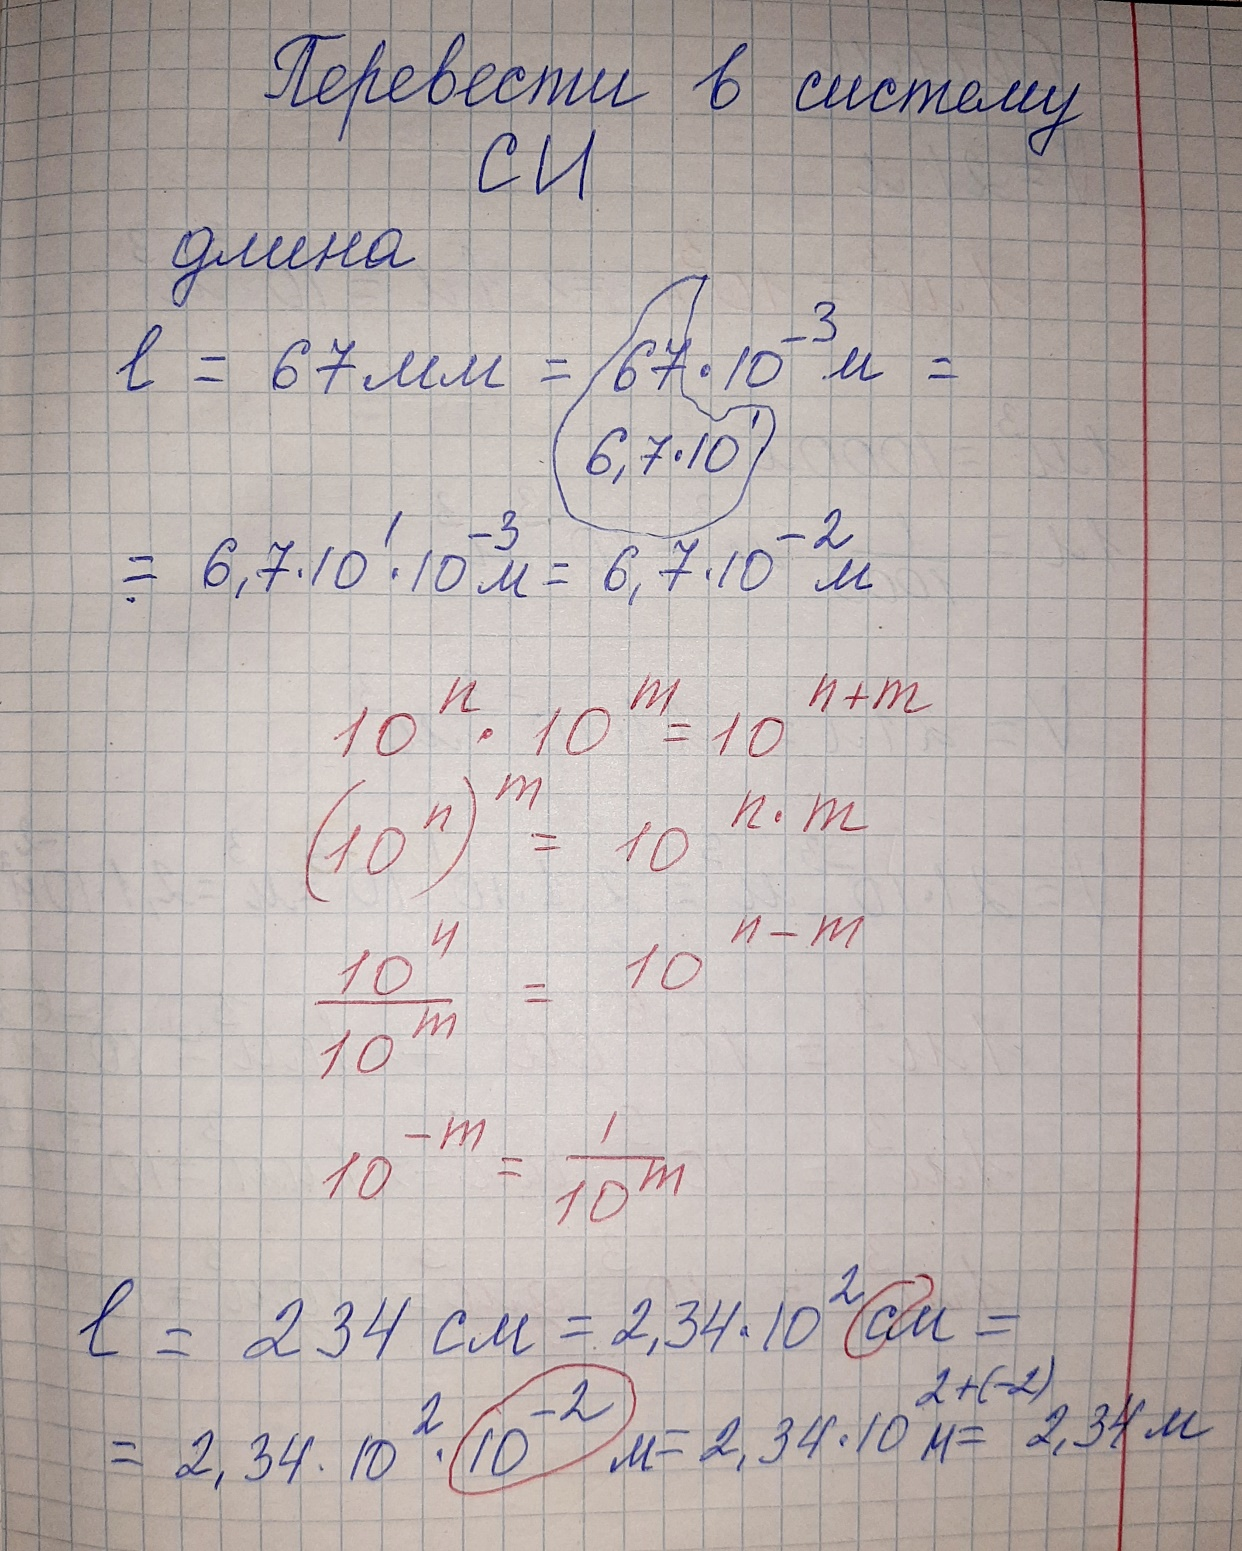 Перевести в систему
СИ
длина
l = 67 мм = 67·10⁻³ м =
6,7·10¹
= 6,7·10¹·10⁻³ м = 6,7·10⁻² м
10ⁿ · 10ᵐ = 10ⁿ⁺ᵐ
(10ⁿ)ᵐ = 10^(n·m)
10ⁿ / 10ᵐ = 10ⁿ⁻ᵐ
10⁻ᵐ = 1 / 10ᵐ
l = 234 см = 2,34·10² см =
= 2,34·10²·10⁻² м = 2,34·10^(2+(-2)) м = 2,34 м